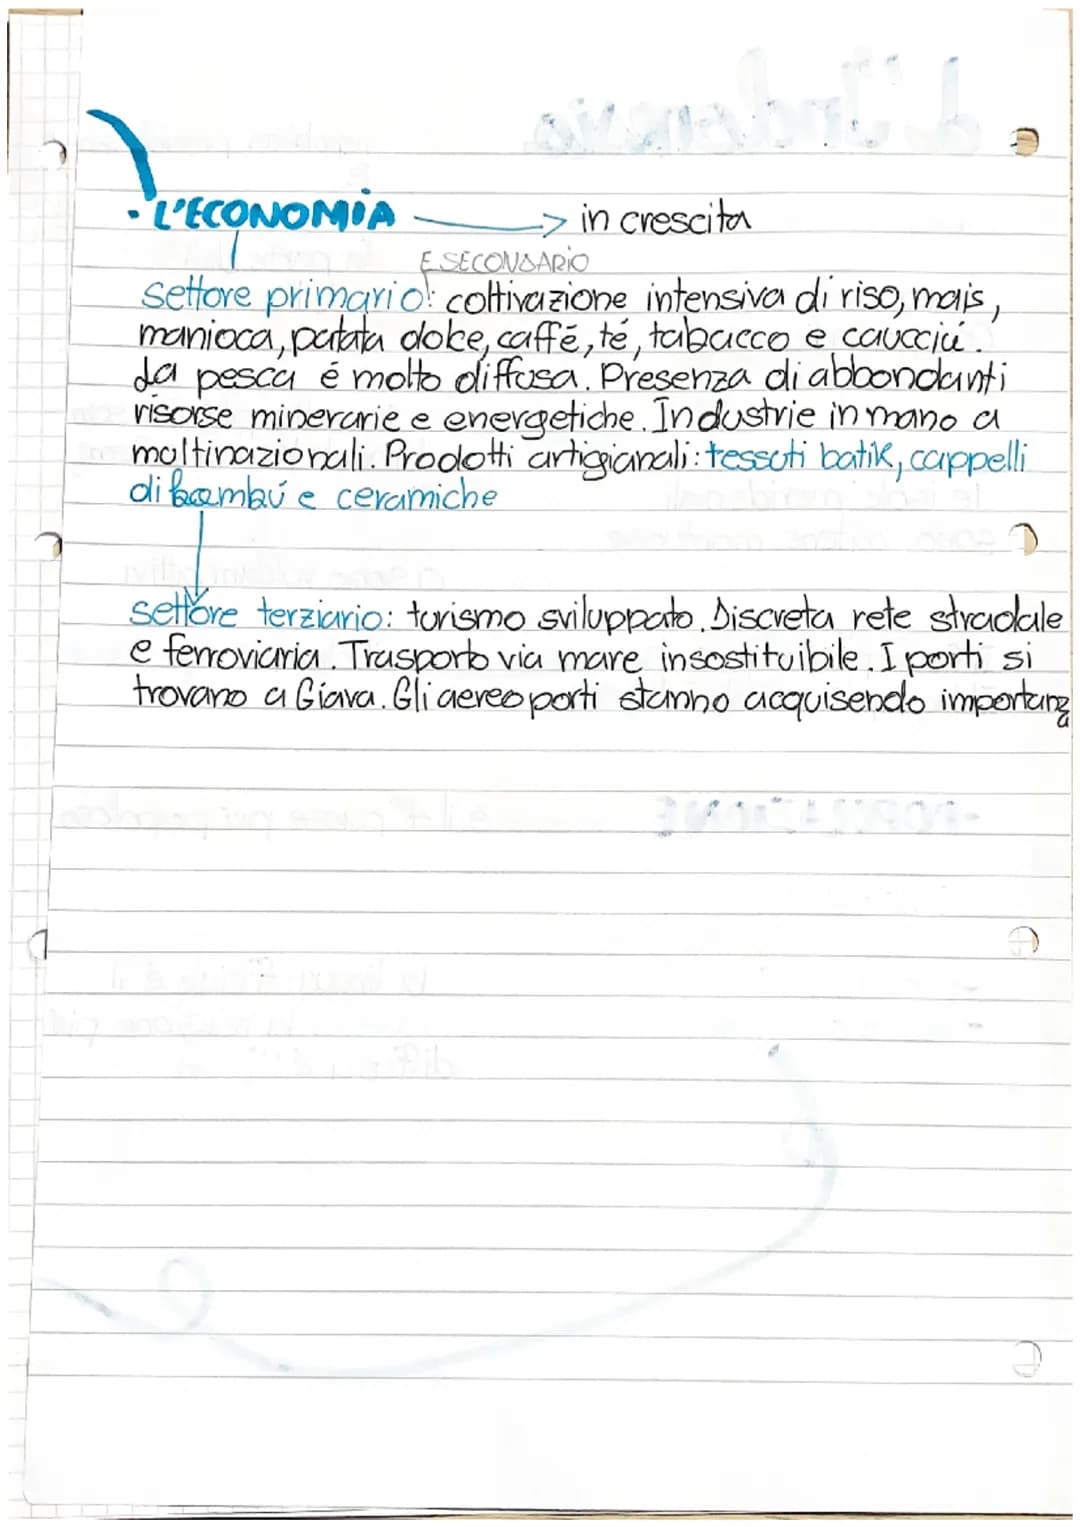 • L'ECONOMIA → in crescita
E SECONDARIO
settore primario: coltivazione intensiva di riso, mais,
manioca, patata dolce, caffé, té, tabacco e caucciú.
La pesca é molto diffusa. Presenza di abbondanti
risorse minerarie e energetiche. Industrie in mano a
multinazionali. Prodotti artigianali: tessuti batik, cappelli
di bambú e ceramiche
settore terziario: turismo sviluppato. Discreta rete stradale
e ferroviaria. Trasporto via mare insostituibile. I porti si
trovano a Giava. Gli aereoporti stanno acquisendo importanza